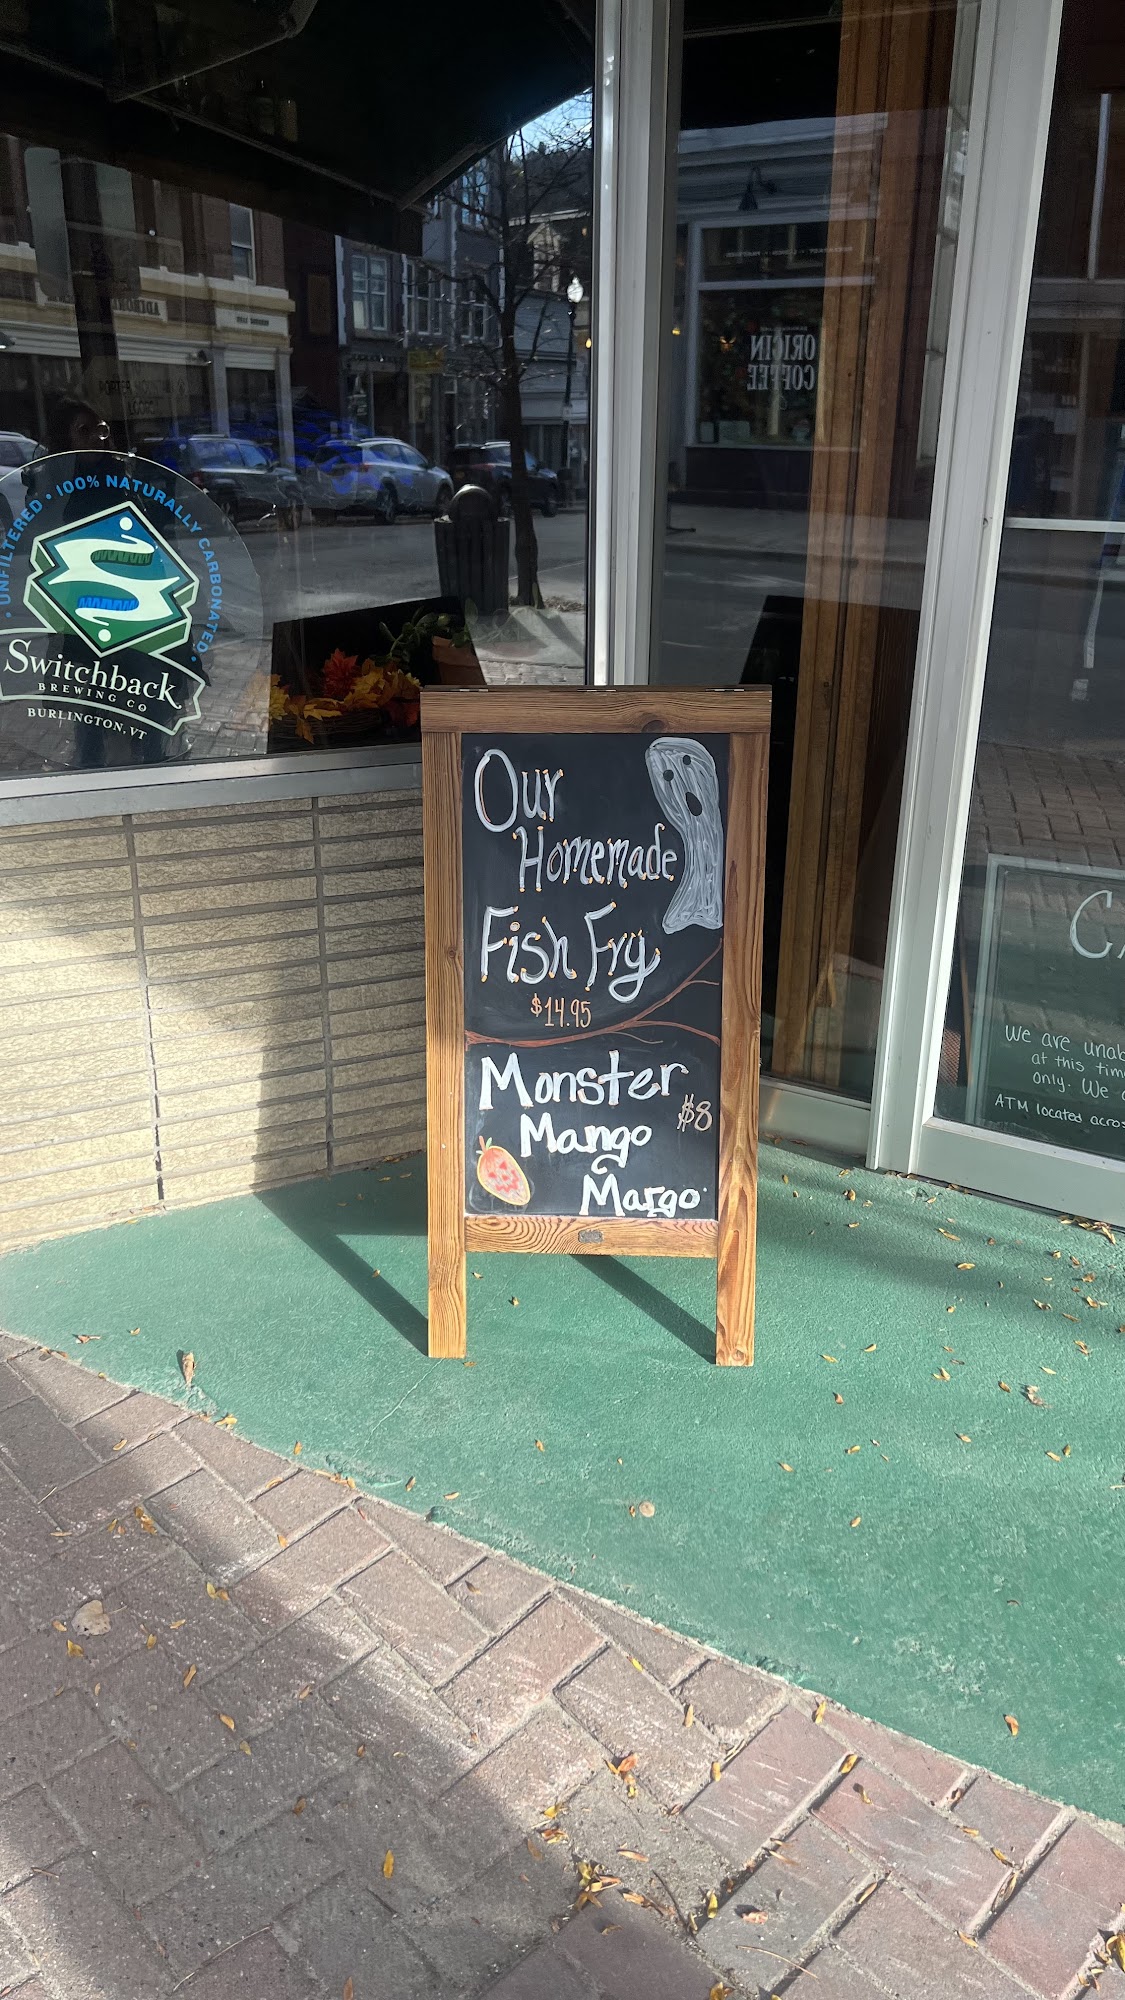 UNFILTERED • 100% NATURALLY CARBONATED •
Switchback
BREWING CO
BURLINGTON, VT
ORIGIN
COFFEE
Our
Homemade
Fish Fry
$14.95
Monster
$8
Mango
Margo
We are
at this
only. We
ATM located